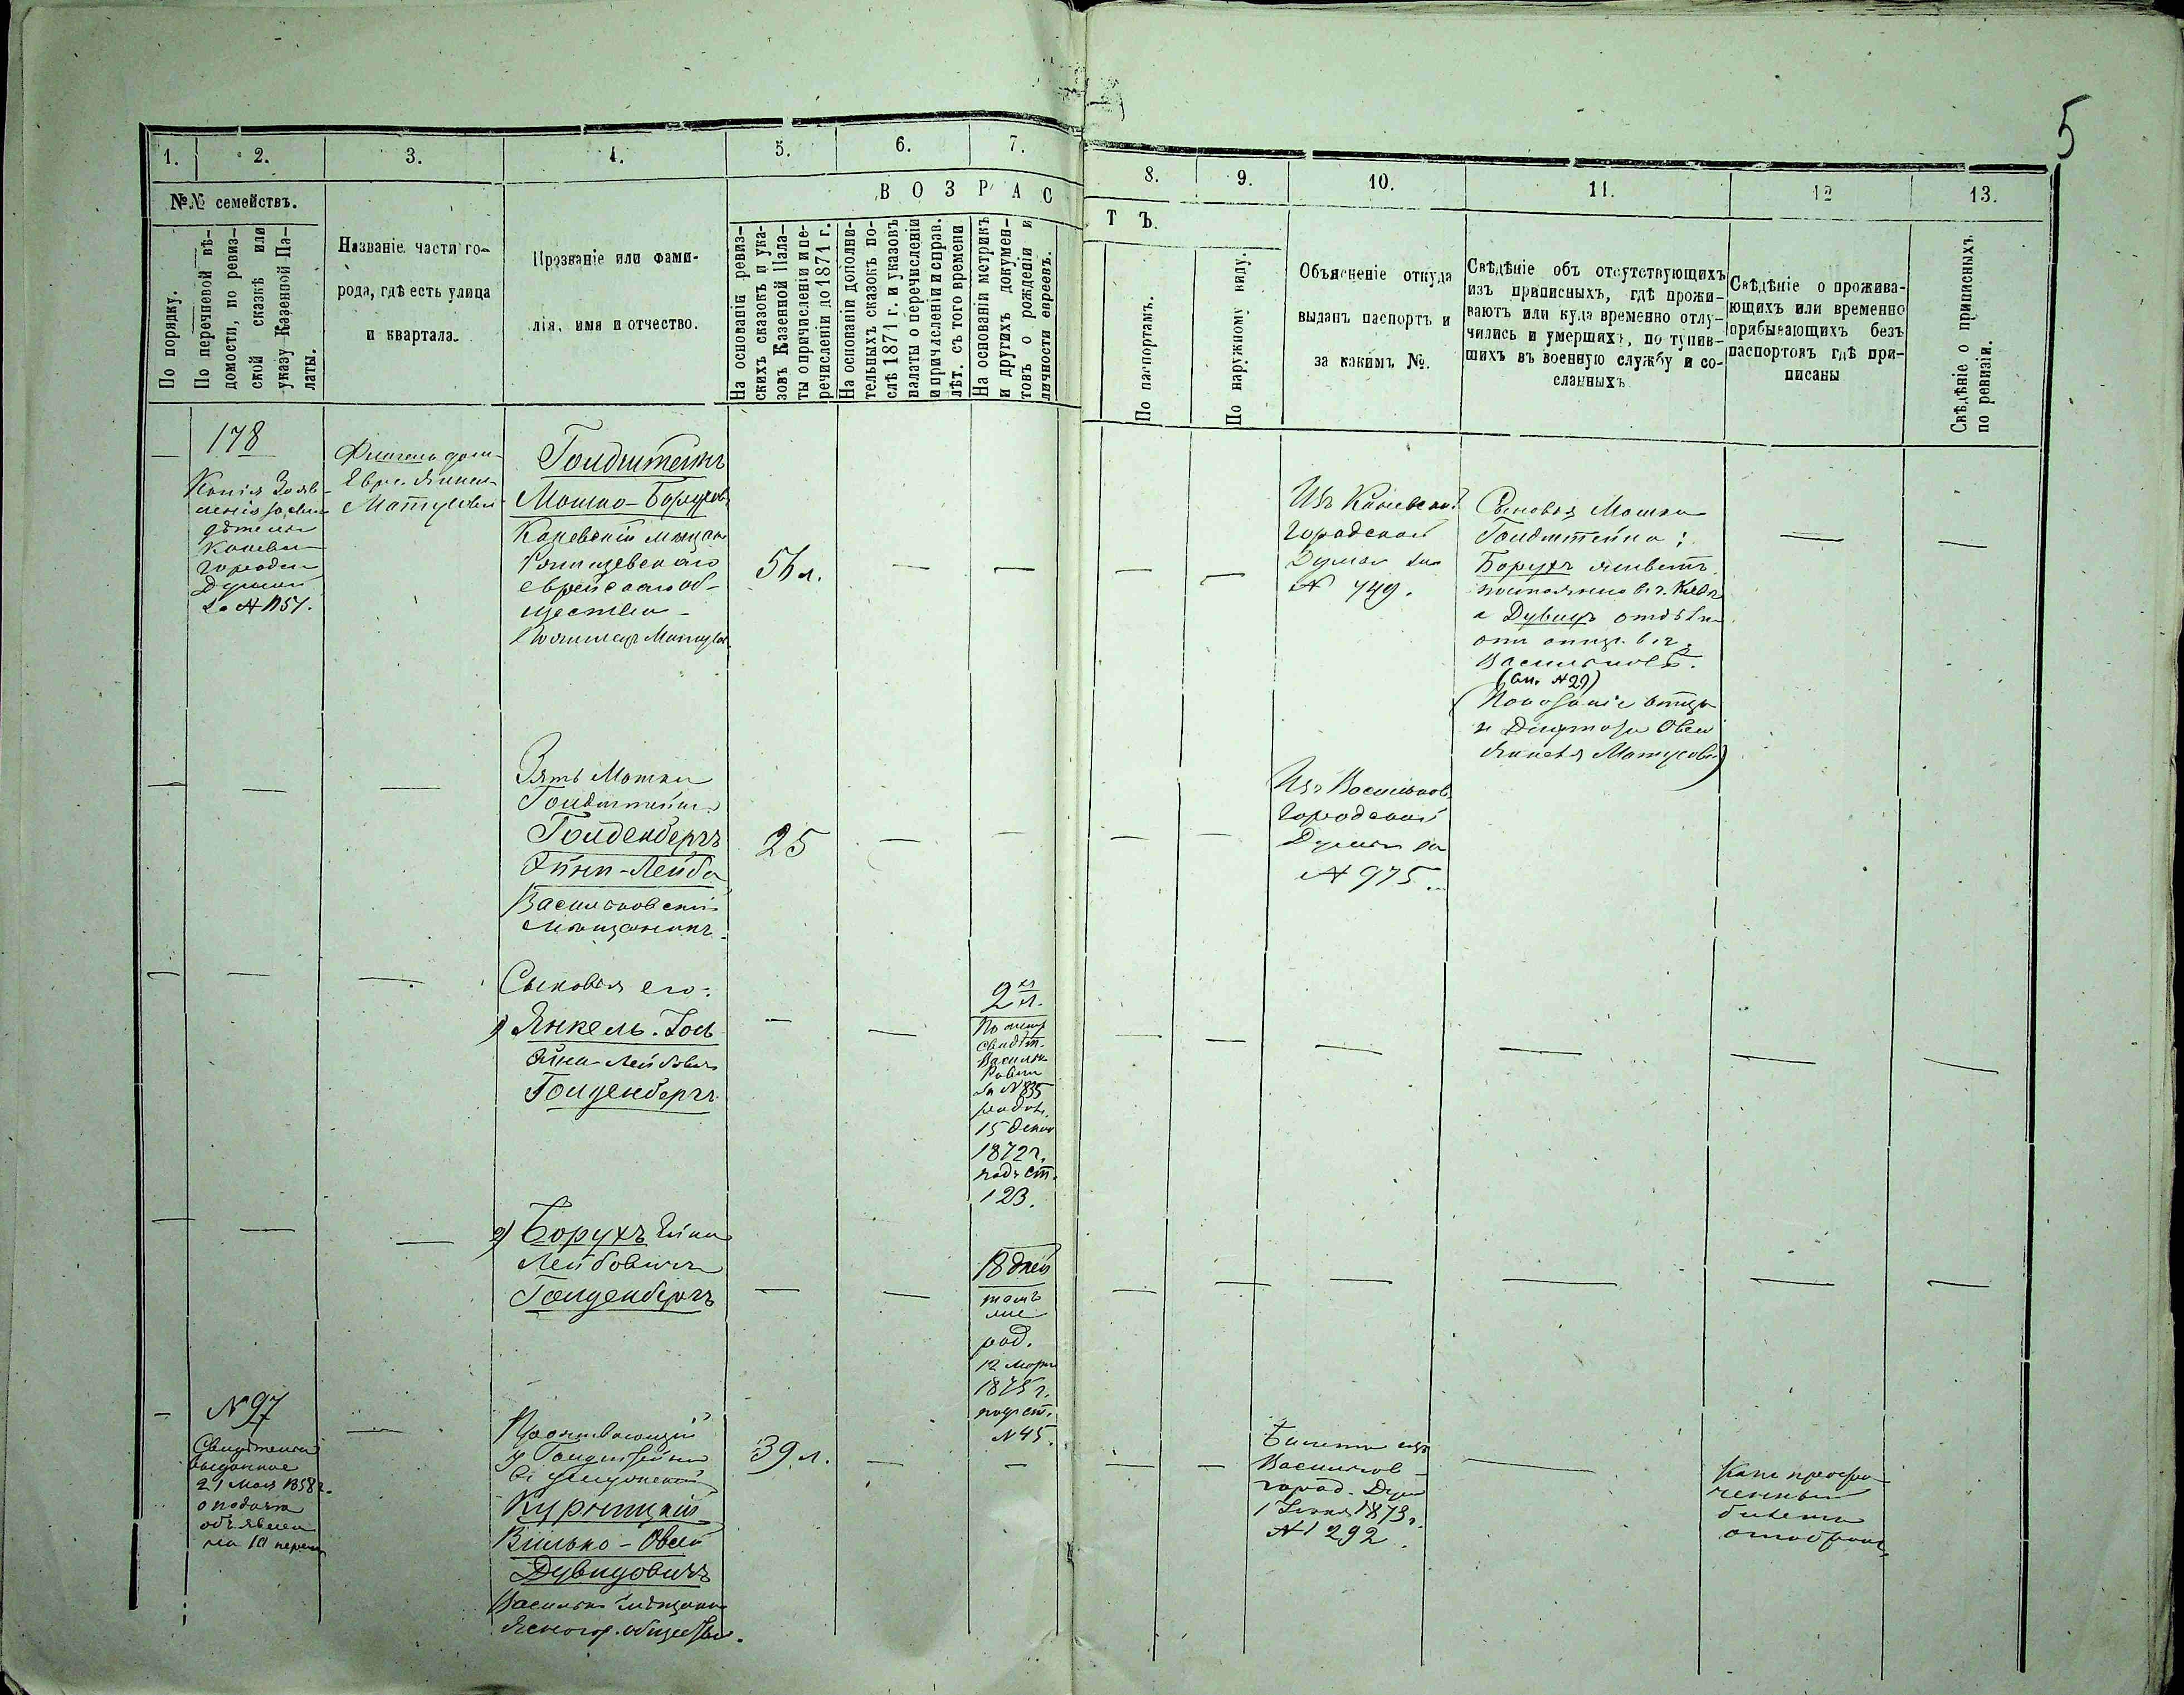 5
1.
2.
3.
4.
5.
6.
7.
8.
9.
10.
11.
12
13.
№№ семействъ.
По порядку.
По перечневой вѣ-
домости, по ревиз-
ской сказкѣ или
указу Казенной Па-
латы.
Названіе части го-
рода, гдѣ есть улица
и квартала.
Прозваніе или фами-
лія, имя и отчество.
ВОЗРАС
ТЪ.
На основаніи ревиз-
скихъ сказокъ и ука-
зовъ Казенной Пала-
ты о причисленіи и пе-
речисленіи до 1871 г.
На основаніи дополни-
тельныхъ сказокъ по-
слѣ 1871 г. и указовъ
палаты о перечисленіи
и причисленіи и справ.
лѣт. съ того времени
На основаніи метрикъ
и другихъ докумен-
товъ о рожденіи и
личности евреевъ.
По паспортамъ.
По наружному виду.
Объясненіе откуда
выданъ паспортъ и
за какимъ №.
Свѣдѣніе объ отсутствующихъ
изъ приписныхъ, гдѣ прожи-
ваютъ или куда временно отлу-
чились и умершихъ, по тупив-
шихъ въ военную службу и со-
сланныхъ
Свѣдѣніе о прожива-
ющихъ или временно
прябывающихъ безъ
паспортовъ гдѣ при-
писаны
Свѣдѣніе о приписныхъ
по ревизіи.
178
Копія
Думой
Матусови
Голдштейнъ
Мошко-Борухов
Каневскій
еврейскаго об-
щества
56 л.
Изъ Каневской
городской
Думы за
№ 749.
Сыновья Мошки
Голдштейна:
Борухъ живетъ
постоянно в г. Кіевѣ
а Дувидъ отдѣльно
от отца в г.
Васильковѣ.
(сп. № 29)
Показаніе отца
и Овсія
Янкеля Матусова)
Зять Мошки
Голдштейна
Голденбергъ
Эйна-Лейба
Васильковскій
мѣщанинъ
25
Изъ Васильков.
городской
Думы за
№ 975.
Сыновья его:
1) Янкель-Іось
Эйна-Лейбовичъ
Голденбергъ
2хъ л.
По метр
свидѣт.
Васильк
Равина
за № 835
родив.
15 Декаб
1872 г.
под ст.
123.
2) Борухъ Эйна
Лейбовичъ
Голденбергъ
18 дней
тамъ
же
род.
12 Март
1875 г.
под ст.
№ 45.
№ 97
Свидѣтельст
выданное
21 Мая 1858 г.
о подачѣ
объявлен
на 10 перепи
Проживающій
у Голдштейна
Курницкій
Вилько-Овсій
Дувидовичъ
Васильк мѣщанин
Ясногор. общества.
39 л.
Билетъ изъ
Васильков-
город. Думы
1 Іюня 1873 г.
№ 1292.
билета